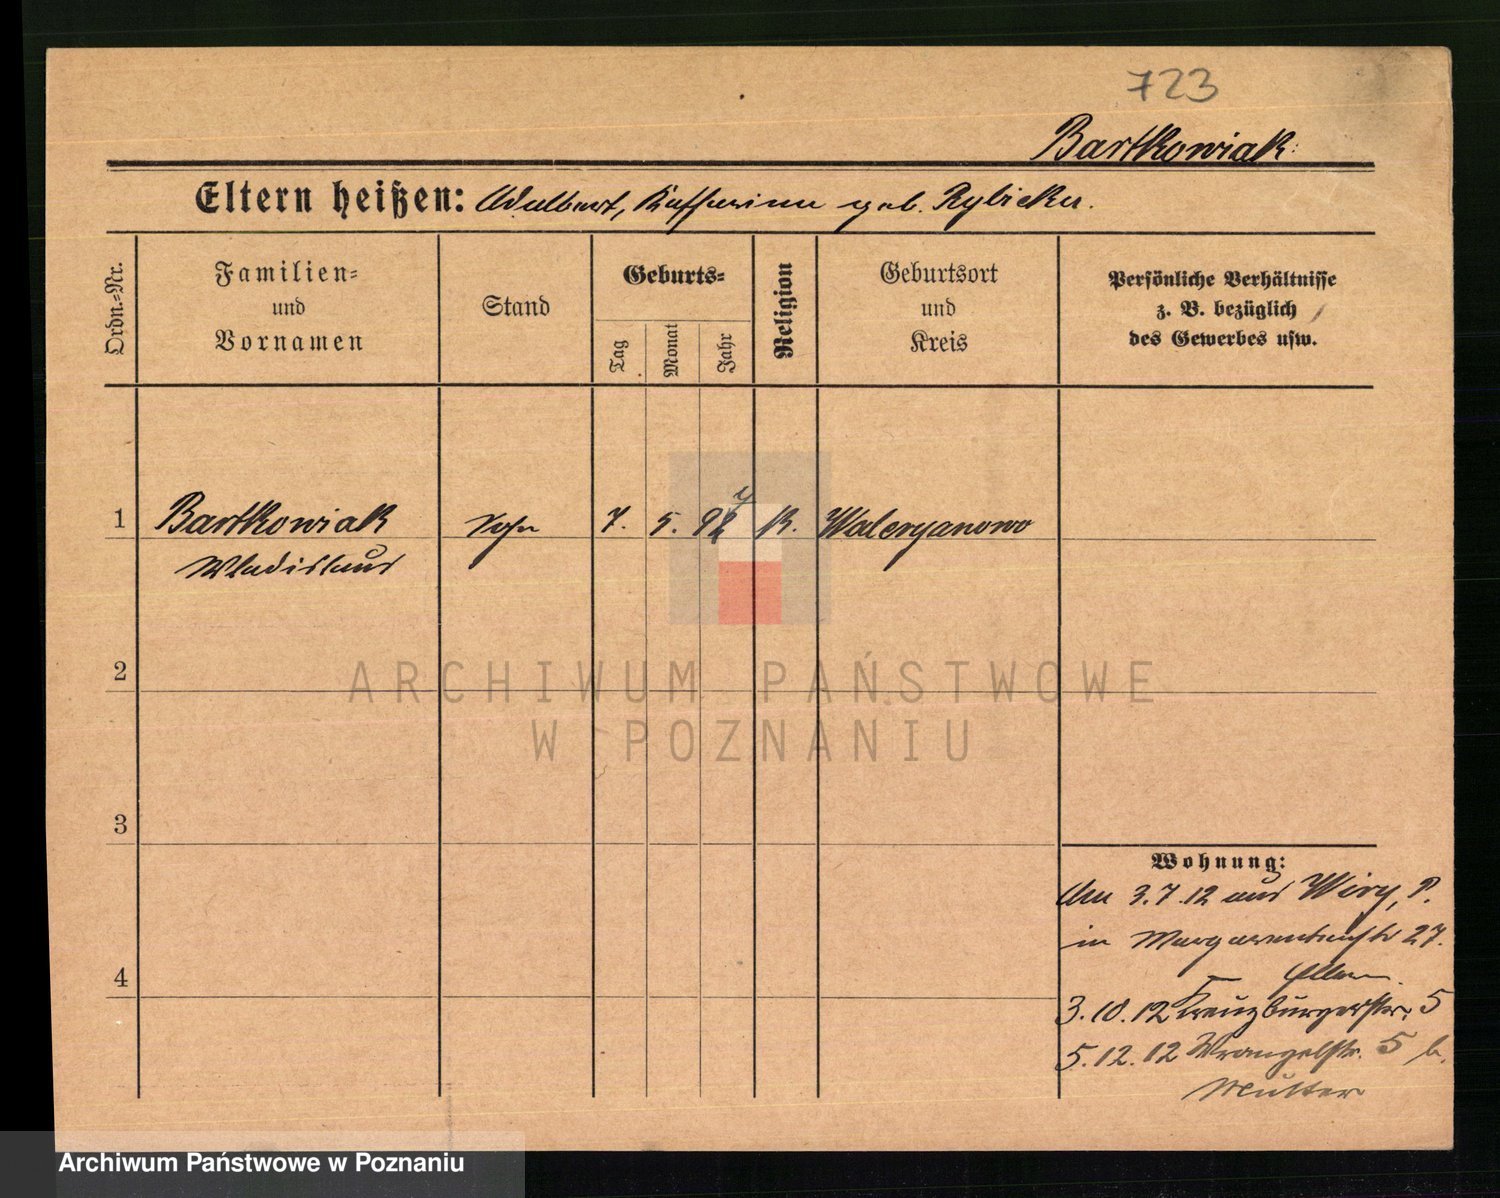 723
Bartkowiak
Eltern heißen: Adalbert, Katharina geb. Rybicka.
Ordn.-Nr.
Familien-
und
Vornamen
Stand
Geburts-
Tag
Monat
Jahr
Religion
Geburtsort
und
Kreis
Persönliche Verhältnisse
z. B. bezüglich
des Gewerbes usw.
1 Bartkowiak Sohn 7. 5. 97 K. Waleryanowo
Wladislaus
2
3
4
Wohnung:
Am 3.7.12 aus Wiry, P.
in Margaretenstr 27.
Eltern
3.10.12 Kreuzburgerstr. 5
5.12.12 Wrangelstr. 5 b.
Mutter
ARCHIWUM PAŃSTWOWE
W POZNANIU
Archiwum Państwowe w Poznaniu